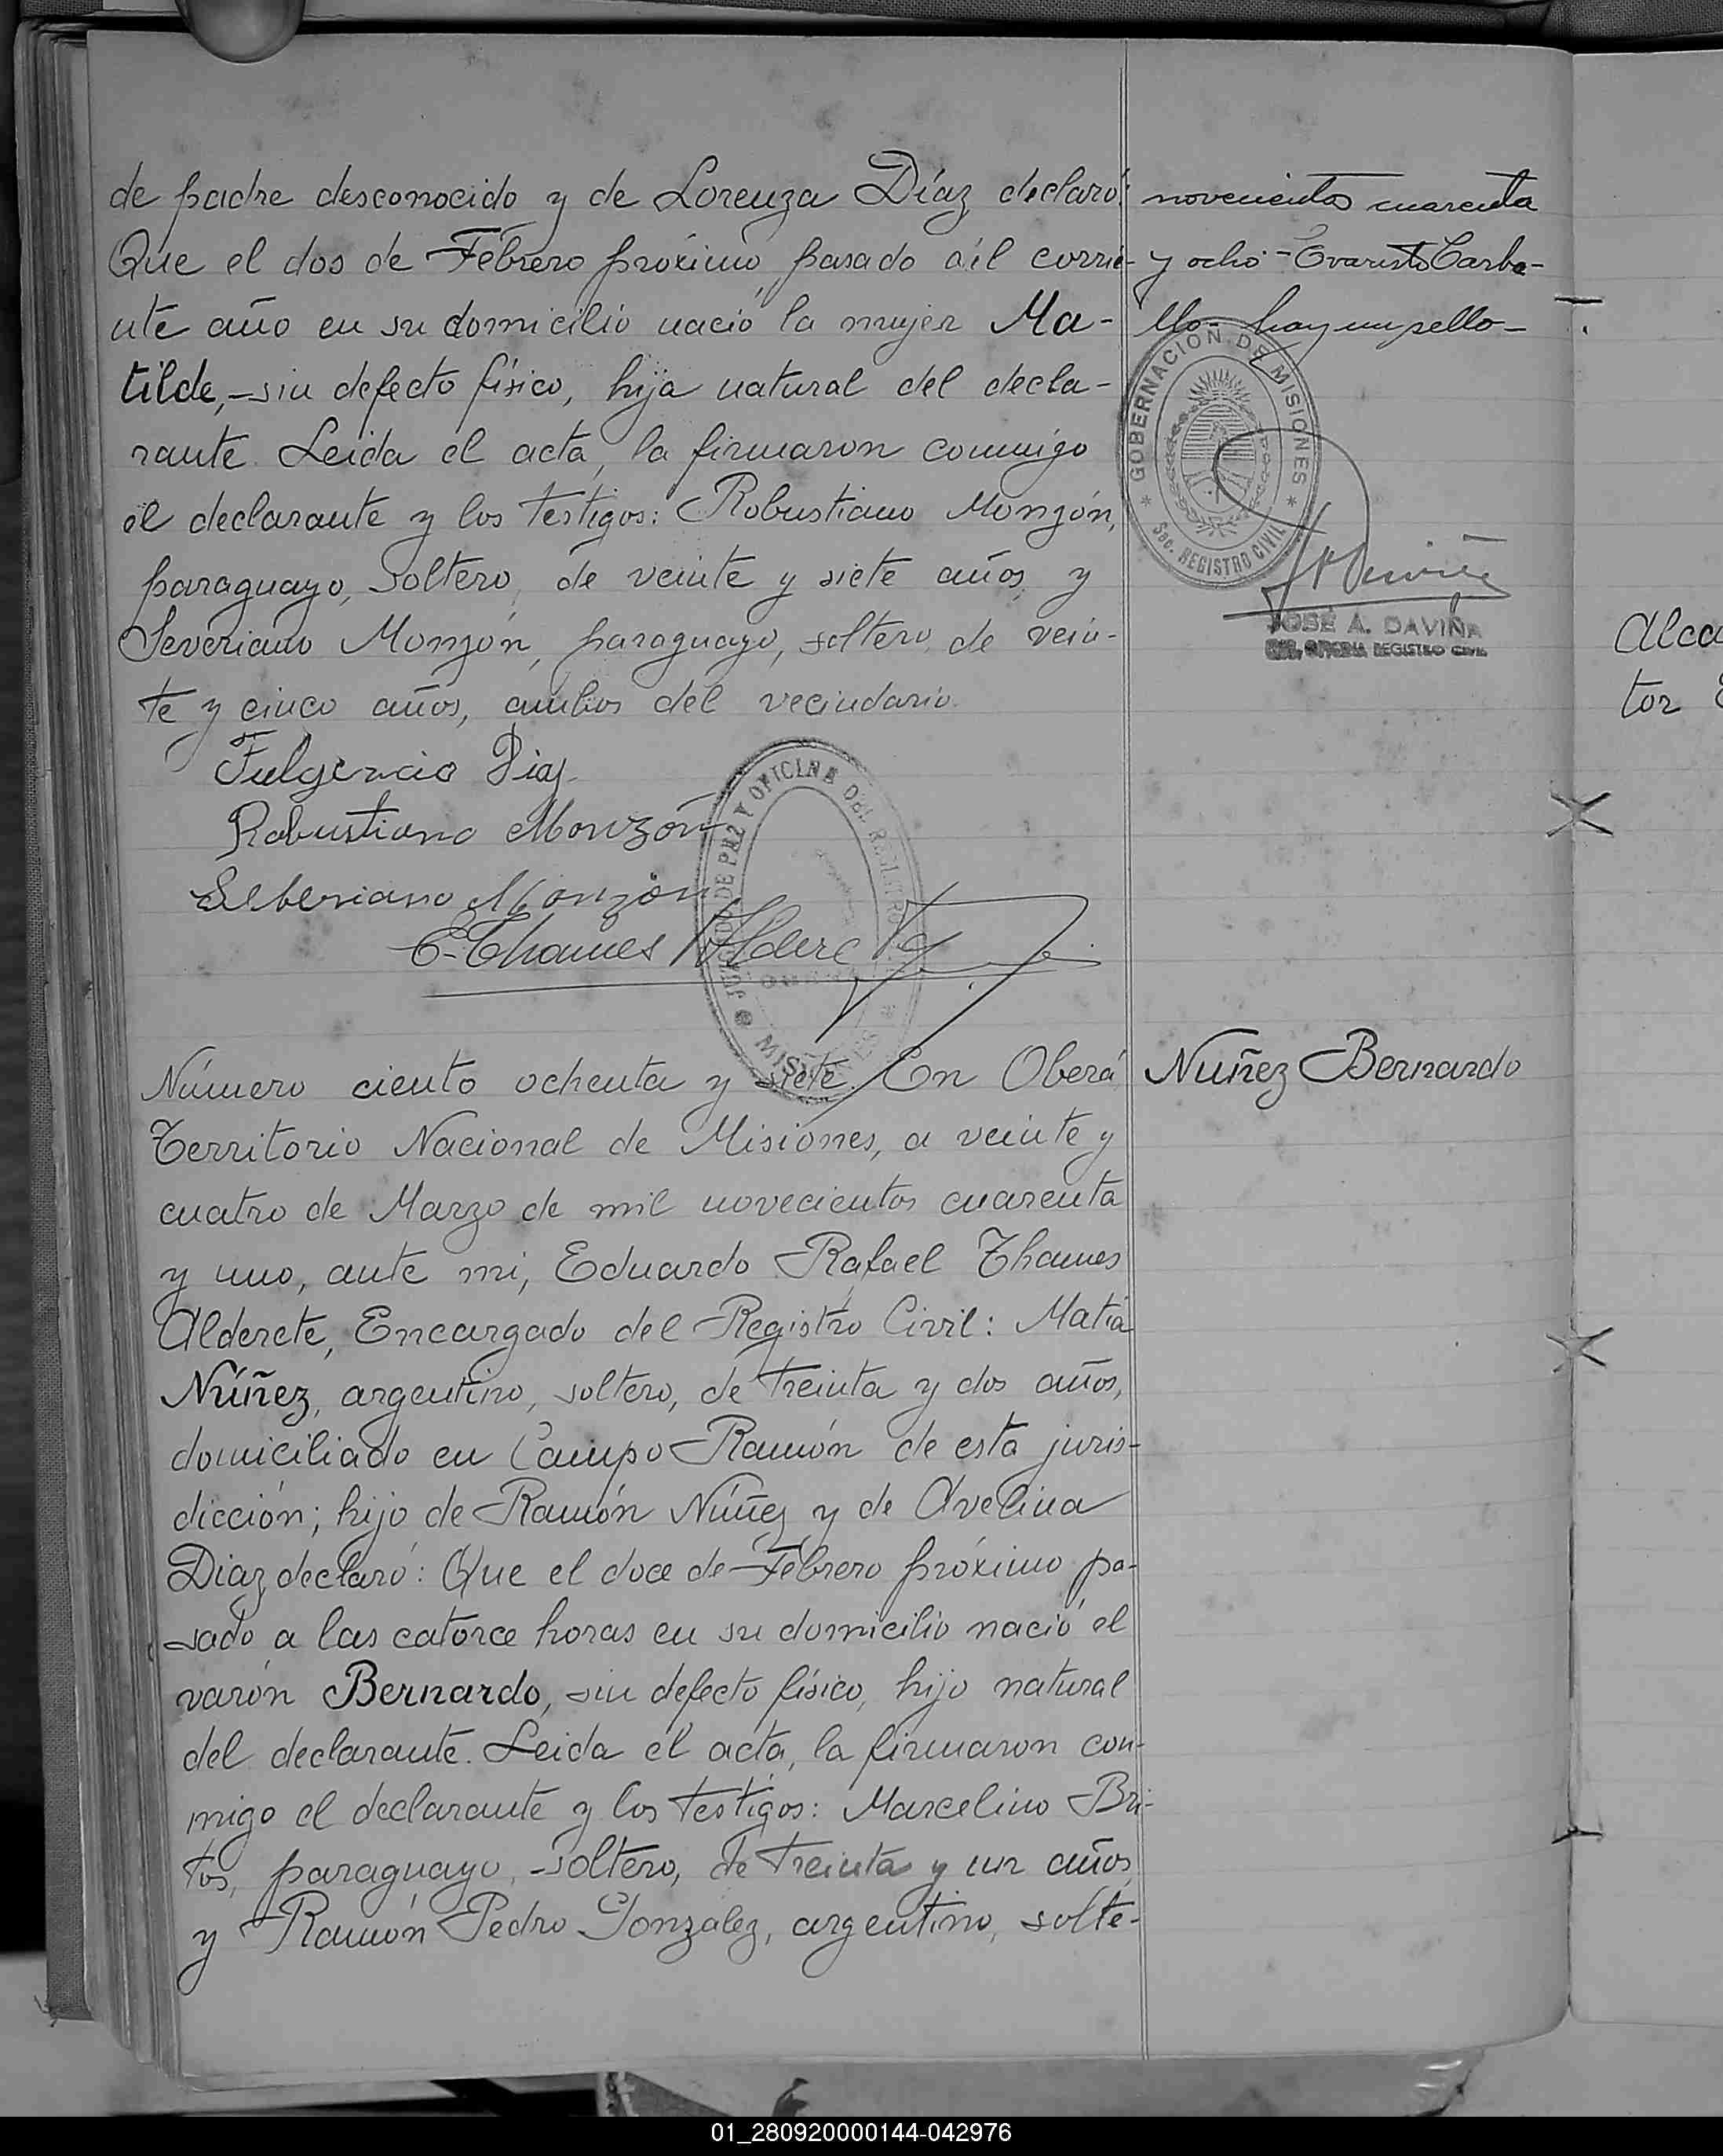 de padre desconocido y de Lorenza Díaz declaró:
Que el dos de Febrero próximo pasado del corrie-
nte año en su domicilio nació la mujer Ma-
tilde, sin defecto físico, hija natural del decla-
rante. Leida el acta, la firmaron conmigo
el declarante y los testigos: Robustiano Monzón,
paraguayo, soltero, de veinte y siete años, y
Severiano Monzón, paraguayo, soltero, de vein-
te y cinco años, ambos del vecindario.
Fulgencio Diaz
Robustiano Monzón
Selberiano Monzón
E. Thames Alderete
JUZGADO DE PAZ Y OFICINA DEL REGISTRO
MISIONES
novecientos cuarenta
y ocho - Evaristo Carba-
llo - hay un sello -
GOBERNACION DE MISIONES
Sec. REGISTRO CIVIL
JOSÉ A. DAVIÑA
REGISTRO CIVIL
Número ciento ochenta y siete. En Oberá
Territorio Nacional de Misiones, a veinte y
cuatro de Marzo de mil novecientos cuarenta
y uno, ante mi, Eduardo Rafael Thames
Alderete, Encargado del Registro Civil: Matía
Núñez, argentino, soltero, de treinta y dos años,
domiciliado en Campo Ramón de esta juris-
dicción; hijo de Ramón Núñez y de Avelina
Diaz declaró: Que el doce de Febrero próximo pa-
sado a las catorce horas en su domicilio nació el
varón Bernardo, sin defecto físico, hijo natural
del declarante. Leida el acta, la firmaron con-
migo el declarante y los testigos: Marcelino Bri-
tos, paraguayo, soltero, de treinta y un años
y Ramón Pedro Gonzalez, argentino, solte-
Nuñez Bernardo
Alca
tor
01_280920000144-042976